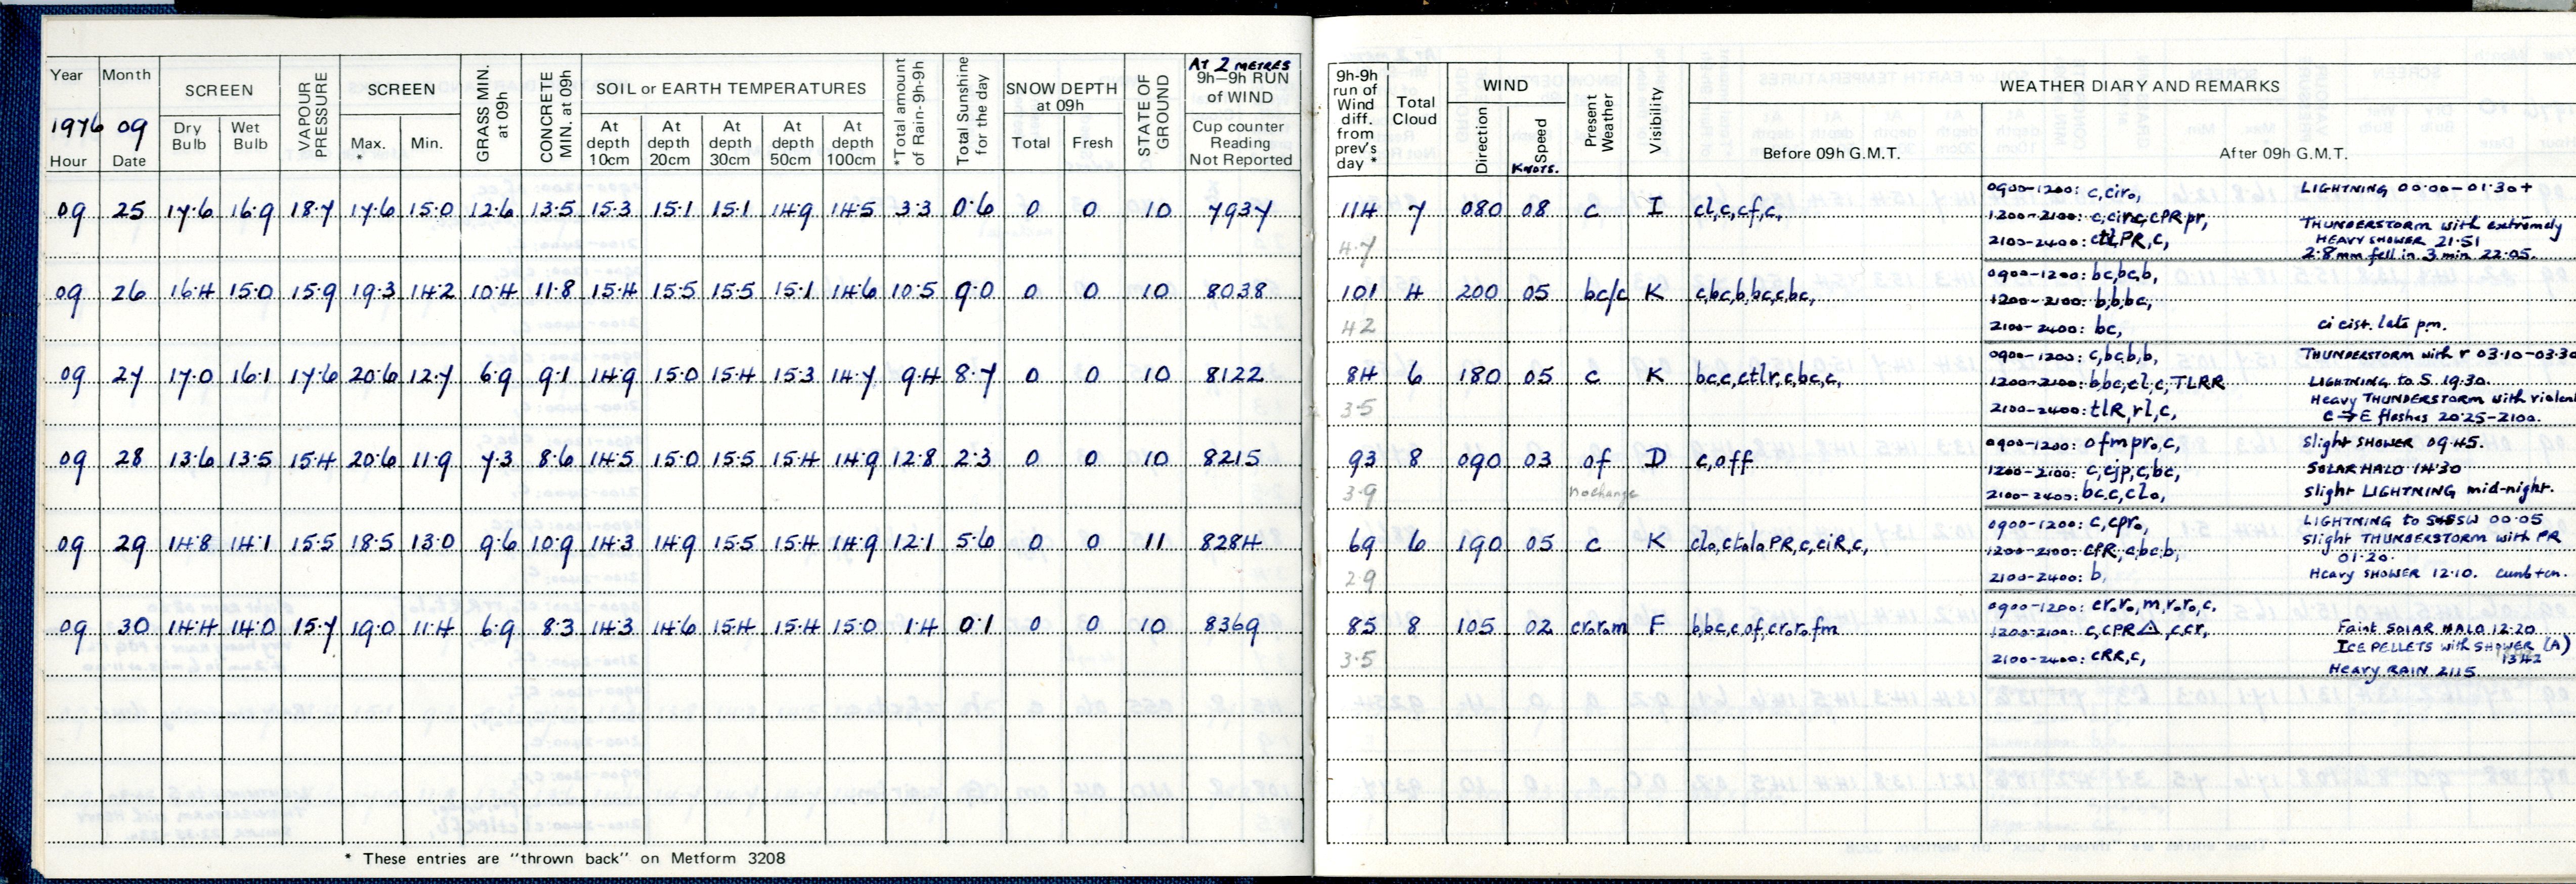 Year Month SCREEN VAPOUR PRESSURE SCREEN GRASS MIN. at 09h CONCRETE MIN. at 09h SOIL or EARTH TEMPERATURES *Total amount of Rain-9h-9h Total Sunshine for the day SNOW DEPTH at 09h STATE OF GROUND AT 2 METRES 9h-9h RUN of WIND
1976 09
Hour Date Dry Bulb Wet Bulb Max. * Min. At depth 10cm At depth 20cm At depth 30cm At depth 50cm At depth 100cm Total Fresh Cup counter Reading Not Reported
09 25 17.6 16.9 18.7 17.6 15.0 12.6 13.5 15.3 15.1 15.1 14.9 14.5 3.3 0.6 0 0 10 7937
09 26 16.4 15.0 15.9 19.3 14.2 10.4 11.8 15.4 15.5 15.5 15.1 14.6 10.5 9.0 0 0 10 8038
09 27 17.0 16.1 17.6 20.6 12.7 6.9 9.1 14.9 15.0 15.4 15.3 14.7 9.4 8.7 0 0 10 8122
09 28 13.6 13.5 15.4 20.6 11.9 7.3 8.6 14.5 15.0 15.5 15.4 14.9 12.8 2.3 0 0 10 8215
09 29 14.8 14.1 15.5 18.5 13.0 9.6 10.9 14.3 14.9 15.5 15.4 14.9 12.1 5.6 0 0 11 8284
09 30 14.4 14.0 15.7 19.0 11.4 6.9 8.3 14.3 14.6 15.4 15.4 15.0 1.4 0.1 0 0 10 8369
* These entries are "thrown back" on Metform 3208
9h-9h run of Wind diff. from prev's day * Total Cloud WIND Direction Speed KNOTS. Present Weather Visibility WEATHER DIARY AND REMARKS
Before 09h G.M.T. After 09h G.M.T.
114 7 080 08 c I cl,c,cf,c,
4.7
0900-1200: c,ciro,
1200-2100: c,circ,cPR pr,
2100-2400: ctLPR,c,
LIGHTNING 00.00-01.30+
THUNDERSTORM with extremely
HEAVY SHOWER 21.51
2.8mm fell in 3 min 22.05.
101 4 200 05 bc/c K c,bc,b,bc,c,bc,
4.2
0900-1200: bc,bc,b,
1200-2100: b,b,bc,
2100-2400: bc,
ci cist. late pm.
84 6 180 05 c K bc,c,ctlr,c,bc,c,
3.5
0900-1200: c,bc,b,b,
1200-2100: b,bc,cl,c,TLRR
2100-2400: tlR,rl,c,
THUNDERSTORM with r 03.10-03.30
LIGHTNING to S 19.30.
Heavy THUNDERSTORM with violent
C→E flashes 20.25-2100.
93 8 090 03 of D c,off
3.9 no change
0900-1200: ofmpro,c,
1200-2100: c,cjp,c,bc,
2100-2400: bc.c,clo,
slight SHOWER 09.45.
SOLAR HALO 14.30
slight LIGHTNING mid-night.
69 6 190 05 c K clo,ctoloPR,c,ciR,c,
2.9
0900-1200: c,cpro,
1200-2100: cPR,c,bc,b,
2100-2400: b,
LIGHTNING to SSW 00.05
slight THUNDERSTORM with PR
01.20.
Heavy SHOWER 12.10. cumb+cn.
85 8 105 02 crorom F b,bc,c,of,crorofm
3.5
0900-1200: croro,m,roro,c,
1200-2100: c,cPR△,c,cr,
2100-2400: cRR,c,
Faint SOLAR HALO 12.20
ICE PELLETS with SHOWER (A)
1342
Heavy RAIN 2115